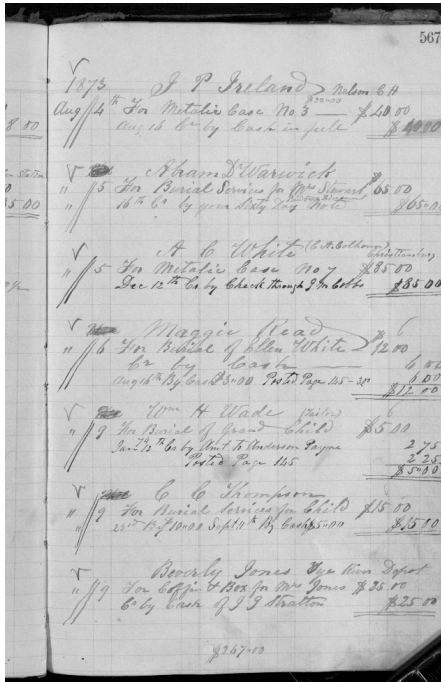 567
1873 J P Ireland Nelson C H
Aug 4th For Metalic Case No 3 — $40.00
Aug 16 Cr by Cash in full $40.00
Abram D Warwick
" 5 For Burial Services for Mrs Stewart $65.00
16th Cr by your Sixty Day Note $65.00
A C White (C A Colhoun Christiansburg)
" 5 For Metalic Case No 7 $85.00
Dec 12th Cr by Check through J M Cobbs $85.00
Maggie Read 6
" 6 For Burial of Ellen White $12.00
Cr by Cash — 6 00
Aug 16th By Cash $5.00 Posted Page 145 6 00
$12 00
Wm H Wade (Tailor) 6
" 9 For Burial of Grand Child $5.00
12th Cr by Amt to Anderson Payne 2 75
Posted Page 145 2 25
$5.00
C C Thompson
" 9 For Burial Services for Child $15.00
22nd By $10.00 Sept 11th By Cash $5.00 $15.00
Beverly Jones Tye River Depot
" 9 For Coffin & Box for Mrs Jones $25.00
Cr by Cash of J J Stratton $25.00
$247.00
8 00
35.00